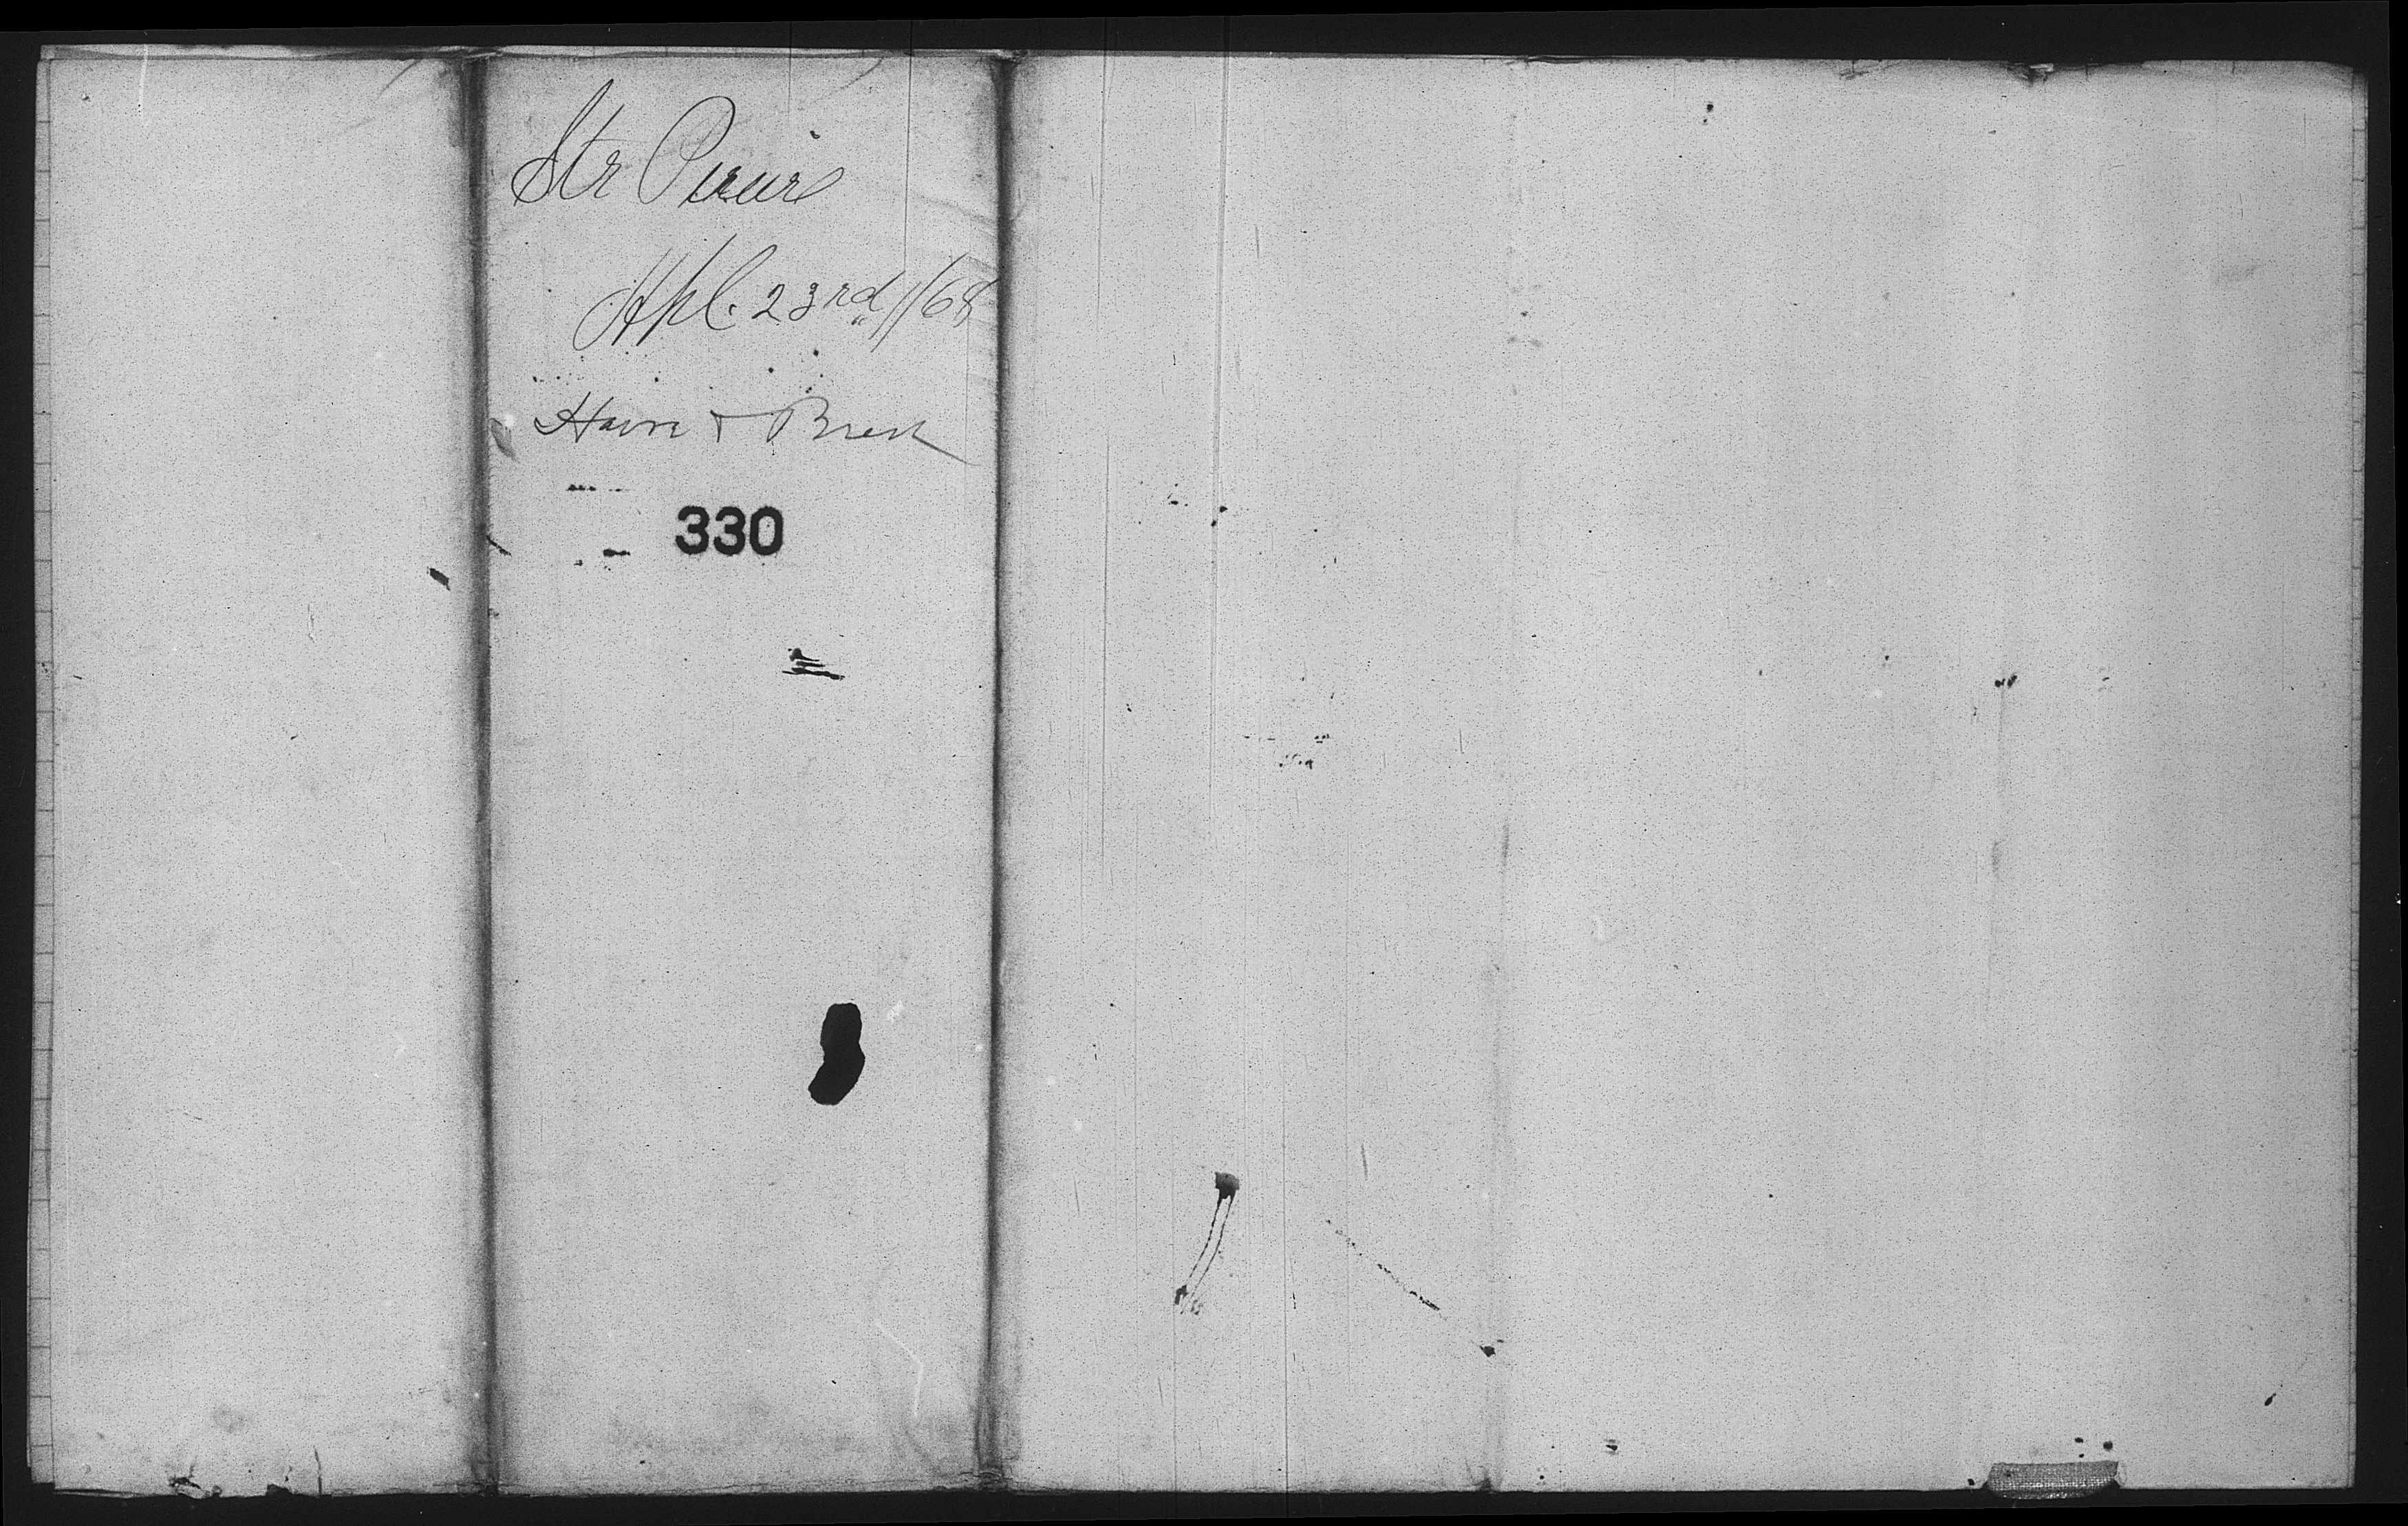 Str Pereire
Apl. 23rd/68
Havre & Brest
330